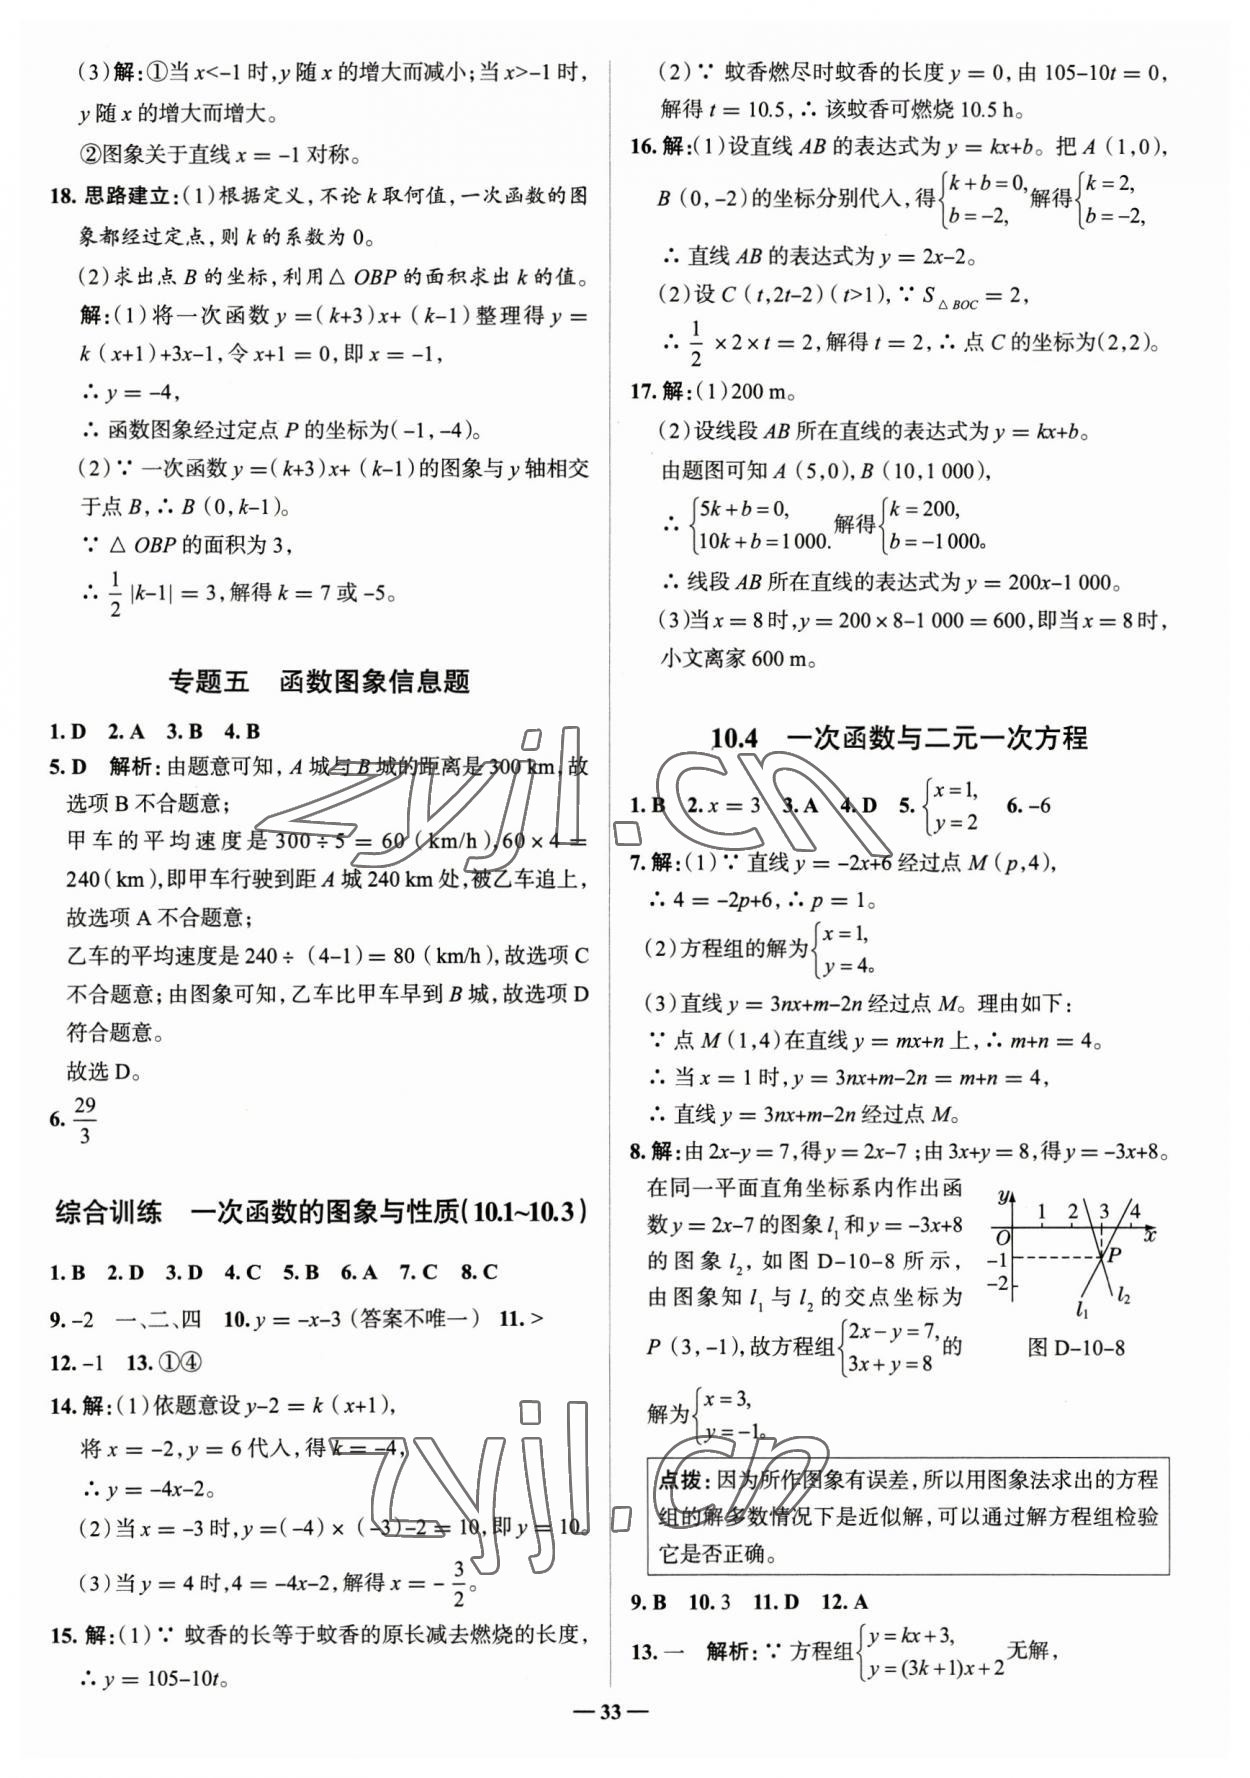 (3)解:①当x<-1时,y随x的增大而减小;当x>-1时,
y随x的增大而增大。
②图象关于直线x=-1对称。
18.思路建立:(1)根据定义,不论k取何值,一次函数的图
象都经过定点,则k的系数为0。
(2)求出点B的坐标,利用△OBP的面积求出k的值。
解:(1)将一次函数y=(k+3)x+(k-1)整理得y=
k(x+1)+3x-1,令x+1=0,即x=-1,
∴y=-4,
∴函数图象经过定点P的坐标为(-1,-4)。
(2)∵一次函数y=(k+3)x+(k-1)的图象与y轴相交
于点B,∴B(0,k-1)。
∵△OBP的面积为3,
∴1/2|k-1|=3,解得k=7或-5。
专题五 函数图象信息题
1.D 2.A 3.B 4.B
5.D 解析:由题意可知,A城与B城的距离是300 km,故
选项B不合题意;
甲车的平均速度是300÷5=60(km/h),60×4=
240(km),即甲车行驶到距A城240 km处,被乙车追上,
故选项A不合题意;
乙车的平均速度是240÷(4-1)=80(km/h),故选项C
不合题意;由图象可知,乙车比甲车早到B城,故选项D
符合题意。
故选D。
6.29/3
综合训练 一次函数的图象与性质(10.1~10.3)
1.B 2.D 3.D 4.C 5.B 6.A 7.C 8.C
9.-2 一、二、四 10.y=-x-3(答案不唯一) 11.>
12.-1 13.①④
14.解:(1)依题意设y-2=k(x+1),
将x=-2,y=6代入,得k=-4,
∴y=-4x-2。
(2)当x=-3时,y=(-4)×(-3)-2=10,即y=10。
(3)当y=4时,4=-4x-2,解得x=-3/2。
15.解:(1)∵蚊香的长等于蚊香的原长减去燃烧的长度,
∴y=105-10t。
(2)∵蚊香燃尽时蚊香的长度y=0,由105-10t=0,
解得t=10.5,∴该蚊香可燃烧10.5 h。
16.解:(1)设直线AB的表达式为y=kx+b。把A(1,0),
B(0,-2)的坐标分别代入,得{k+b=0, b=-2, 解得{k=2, b=-2,
∴直线AB的表达式为y=2x-2。
(2)设C(t,2t-2)(t>1),∵S△BOC=2,
∴1/2×2×t=2,解得t=2,∴点C的坐标为(2,2)。
17.解:(1)200 m。
(2)设线段AB所在直线的表达式为y=kx+b。
由题图可知A(5,0),B(10,1 000),
∴{5k+b=0, 10k+b=1 000. 解得{k=200, b=-1 000。
∴线段AB所在直线的表达式为y=200x-1 000。
(3)当x=8时,y=200×8-1 000=600,即当x=8时,
小文离家600 m。
10.4 一次函数与二元一次方程
1.B 2.x=3 3.A 4.D 5.{x=1, y=2 6.-6
7.解:(1)∵直线y=-2x+6经过点M(p,4),
∴4=-2p+6,∴p=1。
(2)方程组的解为{x=1, y=4。
(3)直线y=3nx+m-2n经过点M。理由如下:
∵点M(1,4)在直线y=mx+n上,∴m+n=4。
∴当x=1时,y=3nx+m-2n=m+n=4,
∴直线y=3nx+m-2n经过点M。
8.解:由2x-y=7,得y=2x-7;由3x+y=8,得y=-3x+8。
在同一平面直角坐标系内作出函
数y=2x-7的图象l1和y=-3x+8
的图象l2,如图D-10-8所示,
由图象知l1与l2的交点坐标为
P(3,-1),故方程组{2x-y=7, 3x+y=8的
解为{x=3, y=-1。
y
1 2 3 4
O x
-1 P
-2
l1 l2
图D-10-8
点拨:因为所作图象有误差,所以用图象法求出的方程
组的解多数情况下是近似解,可以通过解方程组检验
它是否正确。
9.B 10.3 11.D 12.A
13.一 解析:∵方程组{y=kx+3, y=(3k+1)x+2无解,
— 33 —
zyjl.cn
zyjl.cn